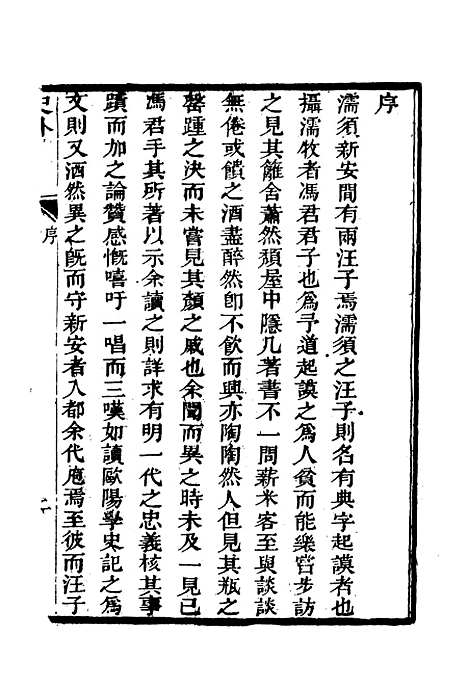 序
濡須新安間有兩汪子焉濡須之汪子則名有典字起謨者也
攝濡牧者馮君君子也為予道起謨之為人貧而能樂嘗步訪
之見其籬舍蕭然頹屋中隱几著書不一問薪米客至與談談
無倦或饋之酒盡醉然卽不飲而興亦陶陶然人但見其瓶之
罄踵之決而未嘗見其顏之戚也余聞而異之時未及一見已
馮君手其所著以示余讀之則詳求有明一代之忠義核其事
蹟而加之論贊感慨嘻吁一唱而三嘆如讀歐陽學史記之為
文則又洒然異之旣而守新安者入都余代庖焉至彼而汪子
史外
序